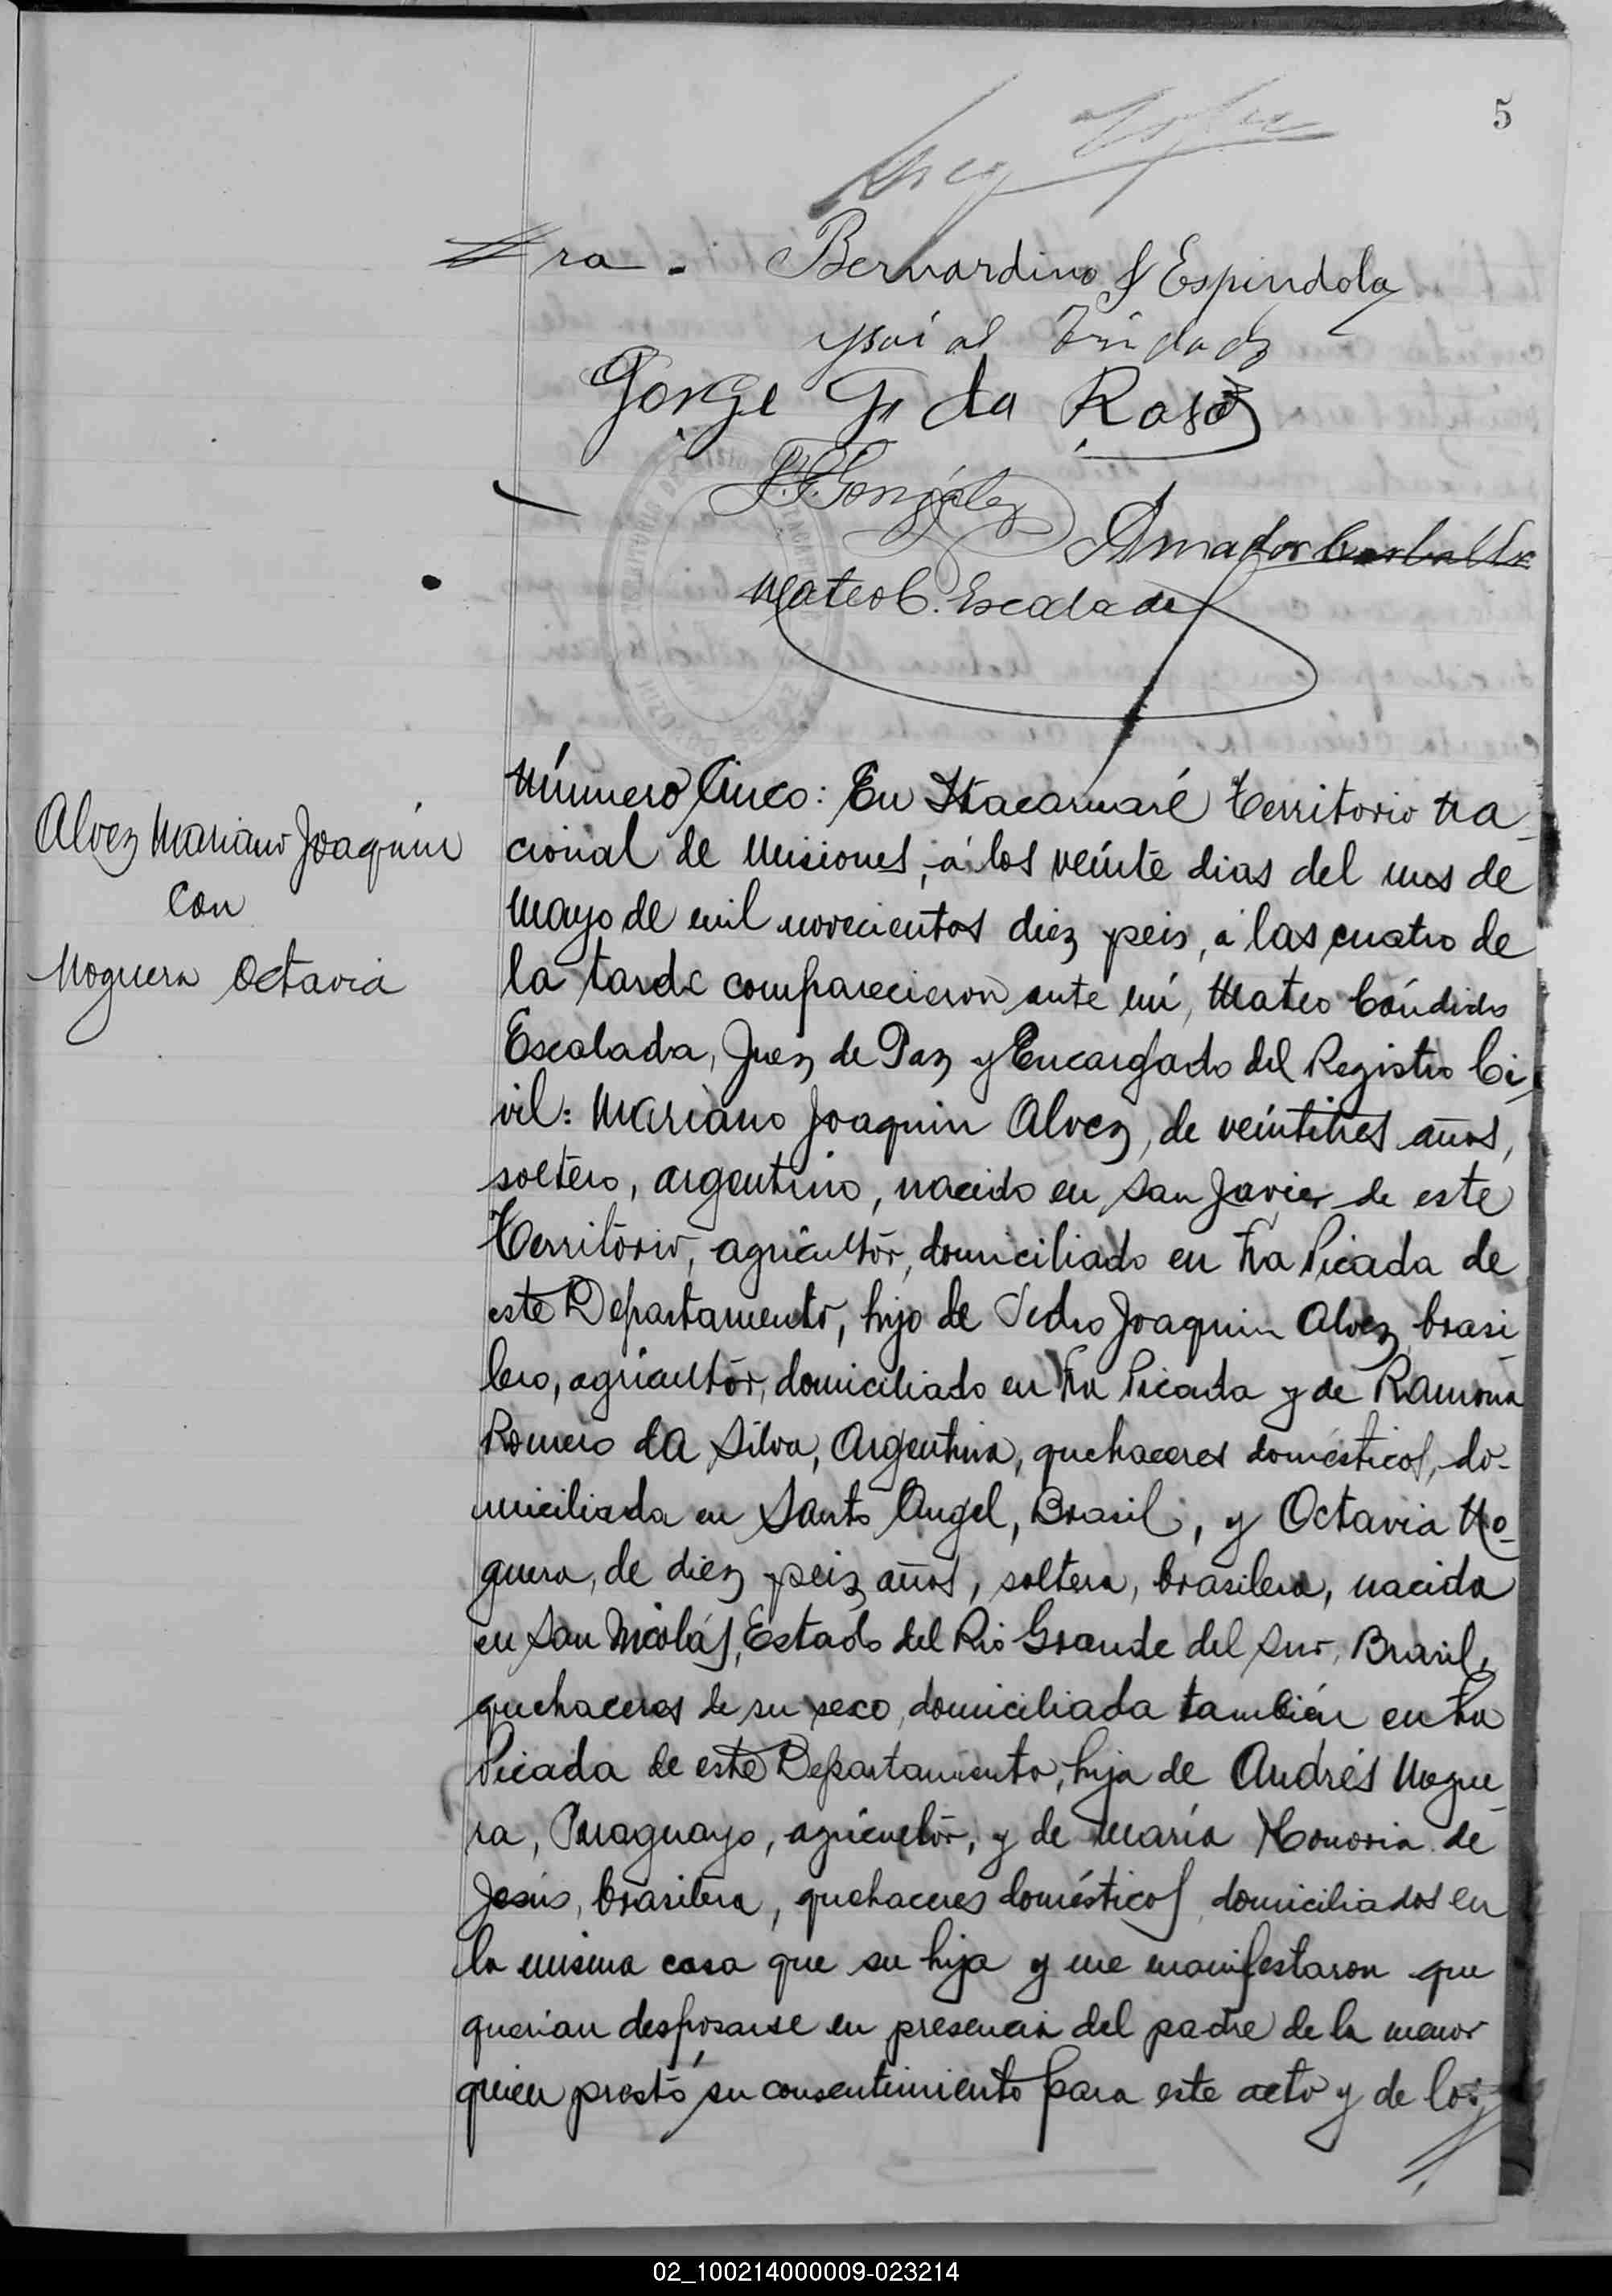 5
ra.
Bernardino S Espindola
Jorge G. da Rosa
P. G. González
Amador Carballo
Mateo C. Escalada
Alvez Mariano Joaquin
con
Noguera Octavia
Número Cinco: En Itacaruaré Territorio Na-
cional de Misiones, á los veinte dias del mes de
Mayo de mil novecientos diez y seis, á las cuatro de
la tarde comparecieron ante mí, Mateo Cándido
Escalada, Juez de Paz y Encargado del Registro Ci-
vil: Mariano Joaquin Alvez, de veintitres años,
soltero, argentino, nacido en San Javier de este
Territorio, agricultor, domiciliado en Picada de
este Departamento, hijo de Pedro Joaquin Alvez, brasi-
lero, agricultor, domiciliado en Picada y de Ramona
Romero da Silva, Argentina, quehaceres domésticos, do-
miciliada en Santo Angel, Brasil; y Octavia No-
guera, de diez y seis años, soltera, brasilera, nacida
en San Nicolás, Estado del Rio Grande del Sur, Brasil,
quehaceres de su sexo, domiciliada también en
Picada de este Departamento, hija de Andrés Nogue-
ra, Paraguayo, agricultor, y de María Honoria de
Jesús, brasilera, quehaceres domésticos, domiciliados en
la misma casa que su hija y me manifestaron que
querian desposarse en presencia del padre de la menor
quien prestó su consentimiento para este acto y de los
02_100214000009-023214